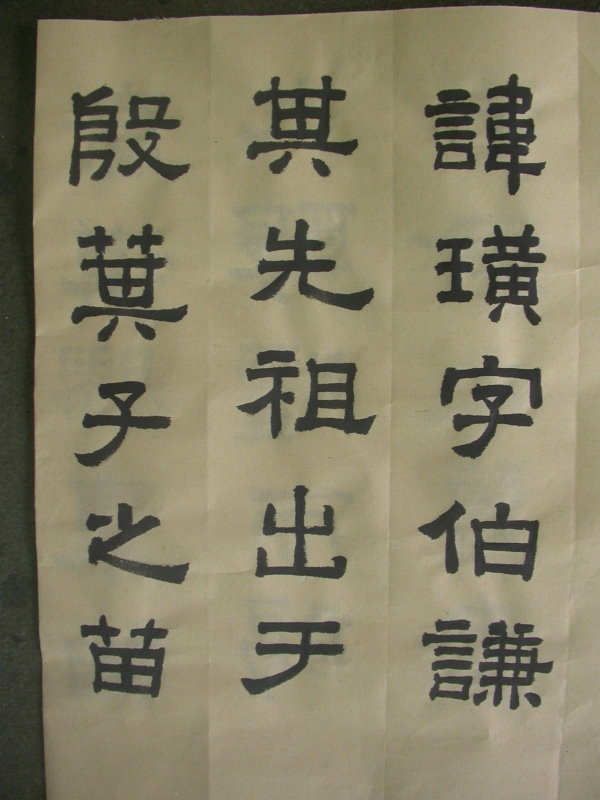 諱璜字伯謙
其先祖出于
殷萁子之苗